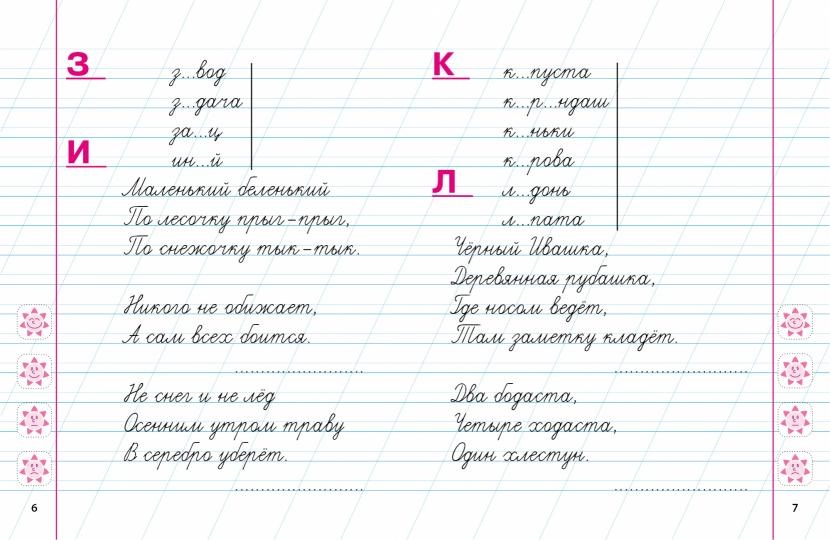 З
з...вод
з...дача
за...ц
И
ин...й
Маленький беленький
По лесочку прыг-прыг,
По снежочку тык-тык.
Никого не обижает,
А сам всех боится.
Не снег и не лёд
Осенним утром траву
В серебро уберёт.
6
К
к...пуста
к...р...ндаш
к...ньки
к...рова
Л
л...донь
л...пата
Чёрный Ивашка,
Деревянная рубашка,
Где носом ведёт,
Там заметку кладёт.
Два бодаста,
Четыре ходаста,
Один хлестун.
7